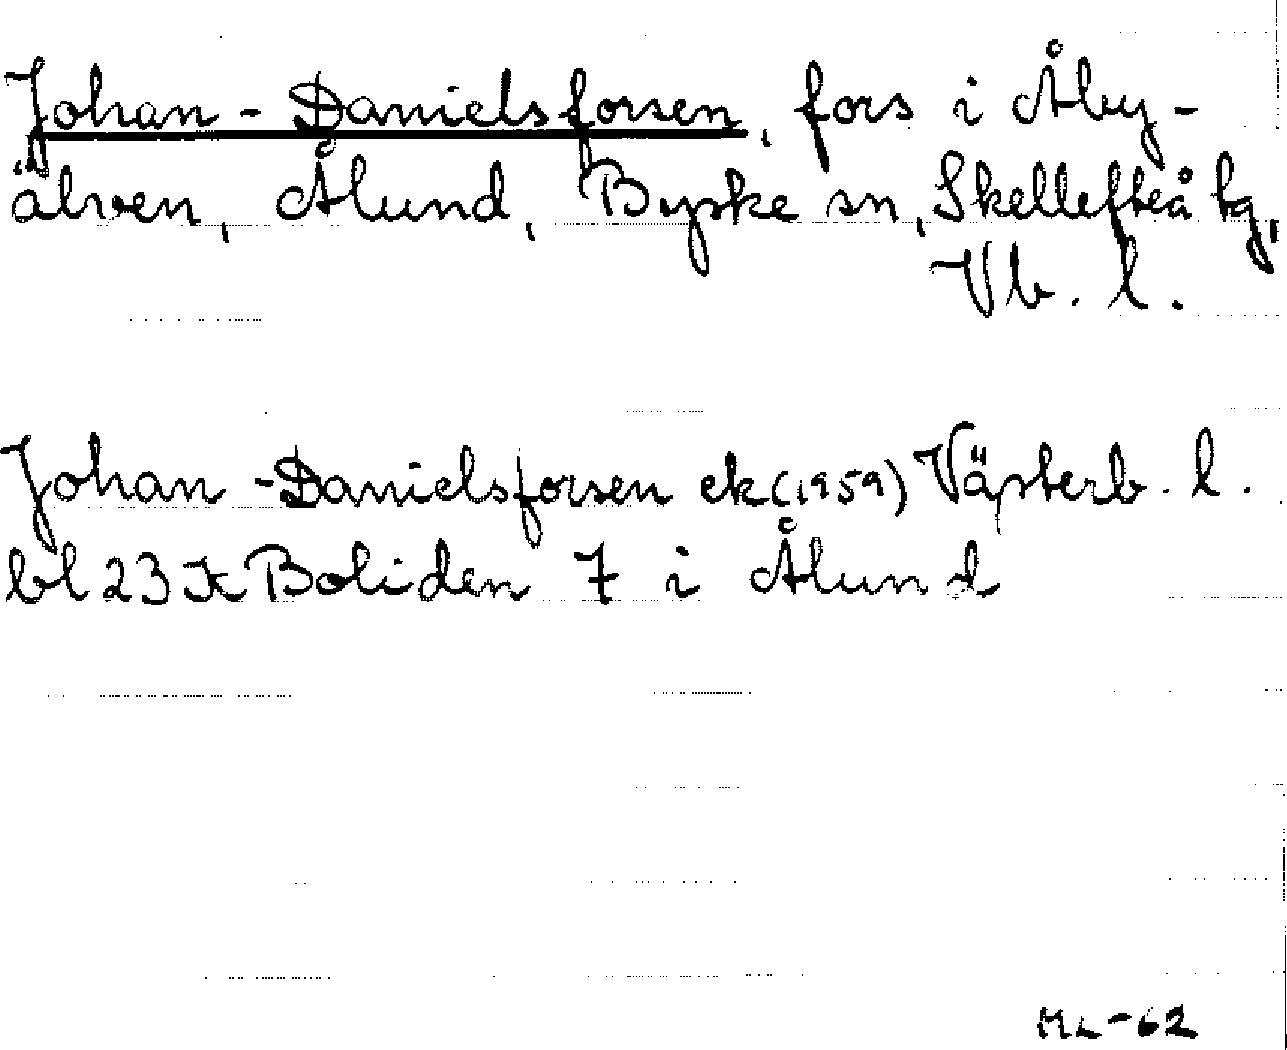 Johan-Danielsforsen, fors i Åby-
älven, Ålund, Byske sn, Skellefteå tg,
Vb. l.
Johan-Danielsforsen ek (1959) Västerb. l.
bl 23 K Boliden 7 i Ålund
ML-62